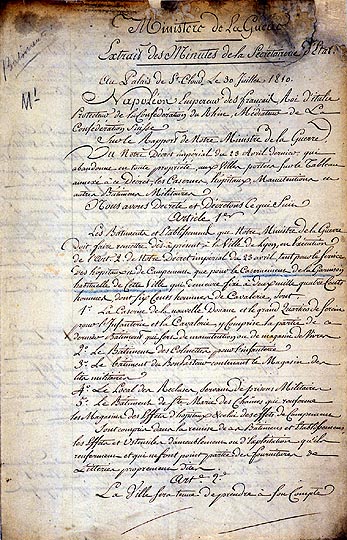 Ministere de La Guerre
Extrait des Minutes de la Secretairerie d'Etat.
Au Palais de St. Cloud Le 30 Juillet 1810.
Mr
Napoléon Empereur des français Roi d'italie
Protecteur de la Confederation du Rhin, Mediateur de La
Confederation Suisse
Sur le Rapport de Notre Ministre de la Guerre
Vu Notre Decret imperial du 23 Avril dernier qui
abandonne en toute propriété, aux Villes portées sur le Tableau
annexé à ce Decret, les Casernes, hopitaux, Manutentions et
autres Batimens Militaires
Nous avons Decreté et Decretons ce qui Suit
Article 1er
Les Batimens et Etablissemens que Notre Ministre de la Guerre
doit faire remettre dès à present à la Ville de Lyon, en Execution
de l'Art. 2 de Notre Decret imperial du 23 avril tant pour le Service
des hopitaux de Campement que pour le Casernement de la Garnison
habituelle de Cette Ville que demeure fixé à deux mille quatre Cents
hommes dont six Cents hommes de Cavalerie, Sont,
1º La Caserne de la nouvelle Douane et le grand Quartier de Serin
pour l'Infanterie et la Cavalerie y Comprise la partie de ce
dernier Batiment qui sert de manutention ou de magasin de Vivres
2º Le Batiment des Colinettes pour l'infanterie
3º Le Batiment du Bonherbe contenant le Magasin de
lits militaires
4º Le Local des Recluses servant de prison Militaire
5º Le Batiment de Ste Marie des Chaines qui renferme
les Magasins des Effets d'hopitaux et celui des effets de Campement
Sont compris dans la remise de ces Batimens et Etablissemens
les Effets et Ustensiles d'ameublement ou d'exploitation qu'ils
renferment et qui ne font point partie des fournitures de
Litteries proprement dites.
Art. 2e
La Ville sera tenue de prendre à son Compte